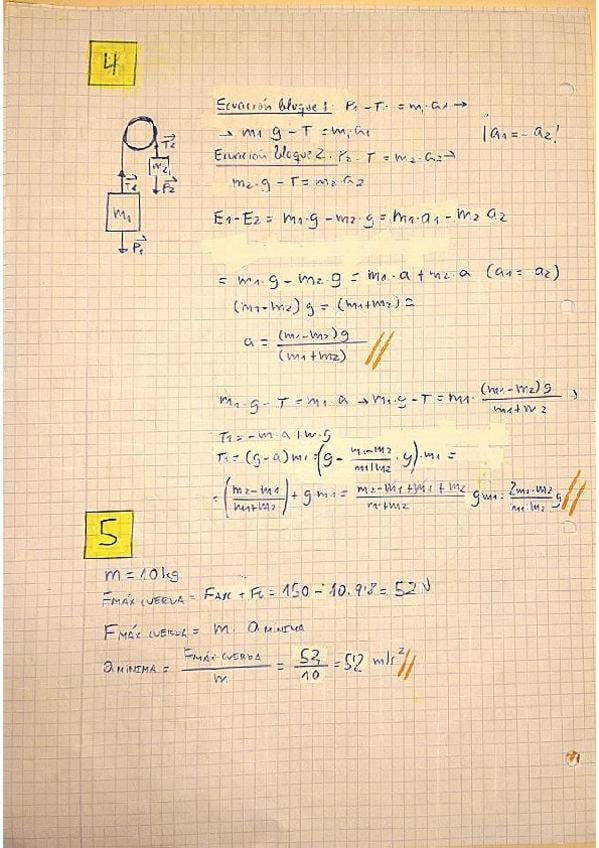 4
Ecuación bloque 1: P1 - T = m1·a1 →
→ m1 g - T = m1 a1
¡a1 = -a2!
Ecuación bloque 2: P2 - T = m2·a2 →
m2·g - T = m2 a2
T2
m2
T2
P2
m1
P1
E1-E2 = m1·g - m2·g = m1·a1 - m2 a2
= m1·g - m2·g = m1·a + m2·a (a1 = a2)
(m1-m2) g = (m1+m2) a
a = (m1-m2)g / (m1+m2)
m1·g - T = m1·a → m1·g - T = m1· (m1-m2)g / m1+m2
T1 = -m·a + m·g
T1 = (g-a) m1 = (g - m1-m2 / m1+m2 · g)·m1 =
= (m2-m1 / m1+m2) + g m1 = m2-m1+m1+m2 / m1+m2 g m1 = 2m1·m2 / m1·m2 g
5
m = 10 kg
FMÁX CUERDA = FASC + FG = 150 - 10·9'8 = 52 N
FMÁX CUERDA = m · a MINIMA
a MINIMA = FMÁX CUERDA / m = 52 / 10 = 5'2 m/s²